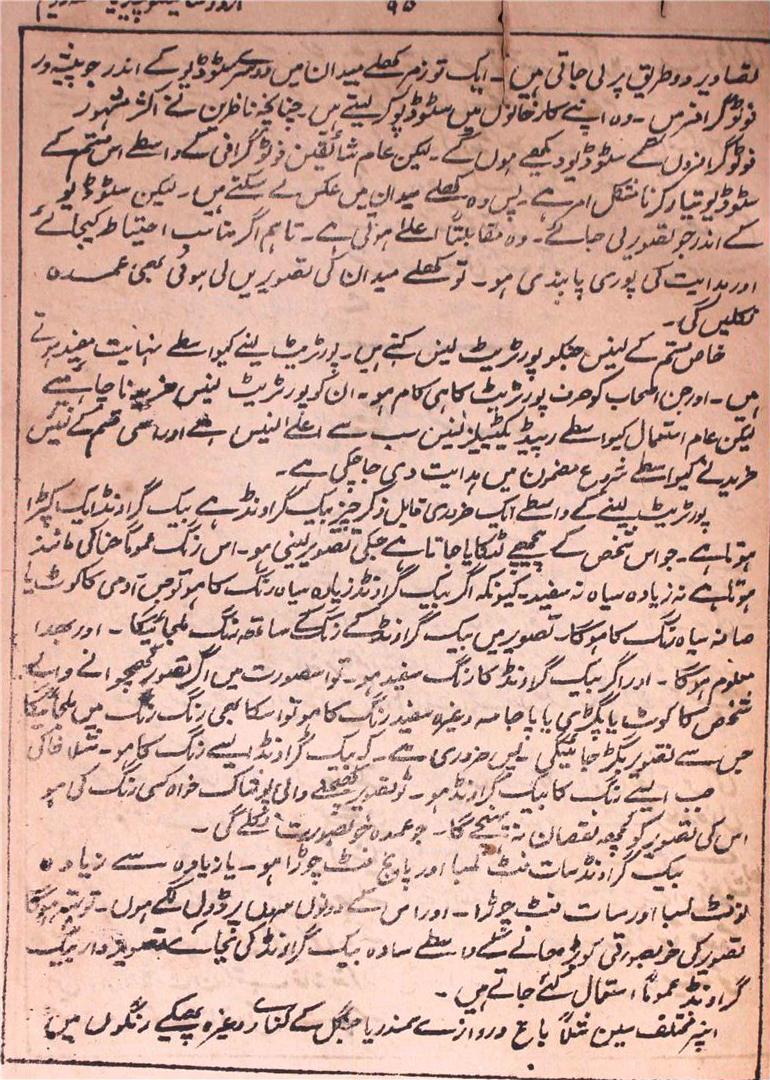 ۹۵
تصاویر دو طریق پر لی جاتی ہیں۔ ایک تو زم کھلے میدان میں دوسرے سٹوڈیو کے اندر جو پیشہ ور
فوٹو گرافر ہیں۔ وہ اپنے کارخانوں میں سٹوڈیو کر لیتے ہیں۔ چنانچہ ناظرین نے اکثر مشہور
فوٹو گرافروں کے سٹوڈیو دیکھے ہوں گے۔ لیکن عام شائقین فوٹو گرافی کے واسطے اس قسم کے
سٹوڈیو تیار کرنا مشکل امر ہے۔ پس وہ کھلے میدان میں عکس لے سکتے ہیں۔ لیکن سٹوڈیو
کے اندر جو تصویر لی جائے۔ وہ مقابلتاً اعلےٰ ہوتی ہے۔ تاہم اگر مناسب احتیاط کیجائے
اور ہدایت کی پوری پابندی ہو۔ تو کھلے میدان کی تصویریں لی ہوئی بھی عمدہ
نکلیں گی۔
خاص قسم کے لینس جنکو پورٹریٹ لینس کہتے ہیں۔ پورٹریٹ لینے کیواسطے نہایت مفید ہوتے
ہیں۔ اور جن اصحاب کو صرف پورٹریٹ کا ہی کام ہو۔ ان کو پورٹریٹ لینس خریدنا چاہئے
لیکن عام استعمال کیواسطے ریپڈ ریکٹیلیز لینس سب سے اعلےٰ لینس ہے اور اسی قسم کے لینس
خریدنے کیواسطے شروع مضمون میں ہدایت دی جا چکی ہے۔
پورٹریٹ لینے کے واسطے ایک ضروری قابل ذکر چیز بیک گراونڈ ہے بیک گراونڈ ایک کپڑا
ہوتا ہے۔ جو اس شخص کے پیچھے لٹکایا جاتا ہے جسکی تصویر لینی ہو۔ اس رنگ عموماً خاکی مانند
ہوتا ہے نہ زیادہ سیاہ نہ سفید۔ کیونکہ اگر بیک گراونڈ زیادہ سیاہ رنگ کا ہو تو جس آدمی کا کوٹ یا
صافہ سیاہ رنگ کا ہو گا۔ تصویر میں بیک گراونڈ کے رنگ کے ساتھ رنگ ملجائیگا۔ اور بھدا
معلوم ہو گا۔ اور اگر بیک گراونڈ کا رنگ سفید ہو۔ تو اس صورت میں اگر تصویر کھچوانے والے
شخص کا کوٹ یا پگڑی یا پاجامہ وغیرہ سفید رنگ کا ہو تو اسکا بھی رنگ رنگ میں ملجائیگا
جس سے تصویر بگڑ جائیگی پس ضروری ہے۔ کہ بیک گراونڈ ایسے رنگ کا ہو۔ مثلا خاکی
جب ایسے رنگ کا بیک گراونڈ ہو۔ تو تصویر کھچنے والی پوشاک خواہ کسی رنگ کی ہو
اس کی تصویر کو کچھ نقصان نہ پہنچے گا۔ جو عمدہ خوبصورت نکلے گی۔
بیک گراونڈ سات فٹ لمبا اور پانچ فٹ چوڑا ہو۔ یا زیادہ سے زیادہ
نو فٹ لمبا اور سات فٹ چوڑا۔ اور اس کے دونوں سروں پر رول لگے ہوں۔ تو بہتر ہو گا
تصویر کی خوبصورتی کو بڑھانے کے واسطے سادہ بیک گراونڈ کی بجائے تصویر دار بیک
گراونڈ عموماً استعمال کئے جاتے ہیں۔
اُنپر مختلف سین مثلاً باغ دروازے سمندر یا جنگل کے کنارے وغیرہ پھیکے رنگوں میں